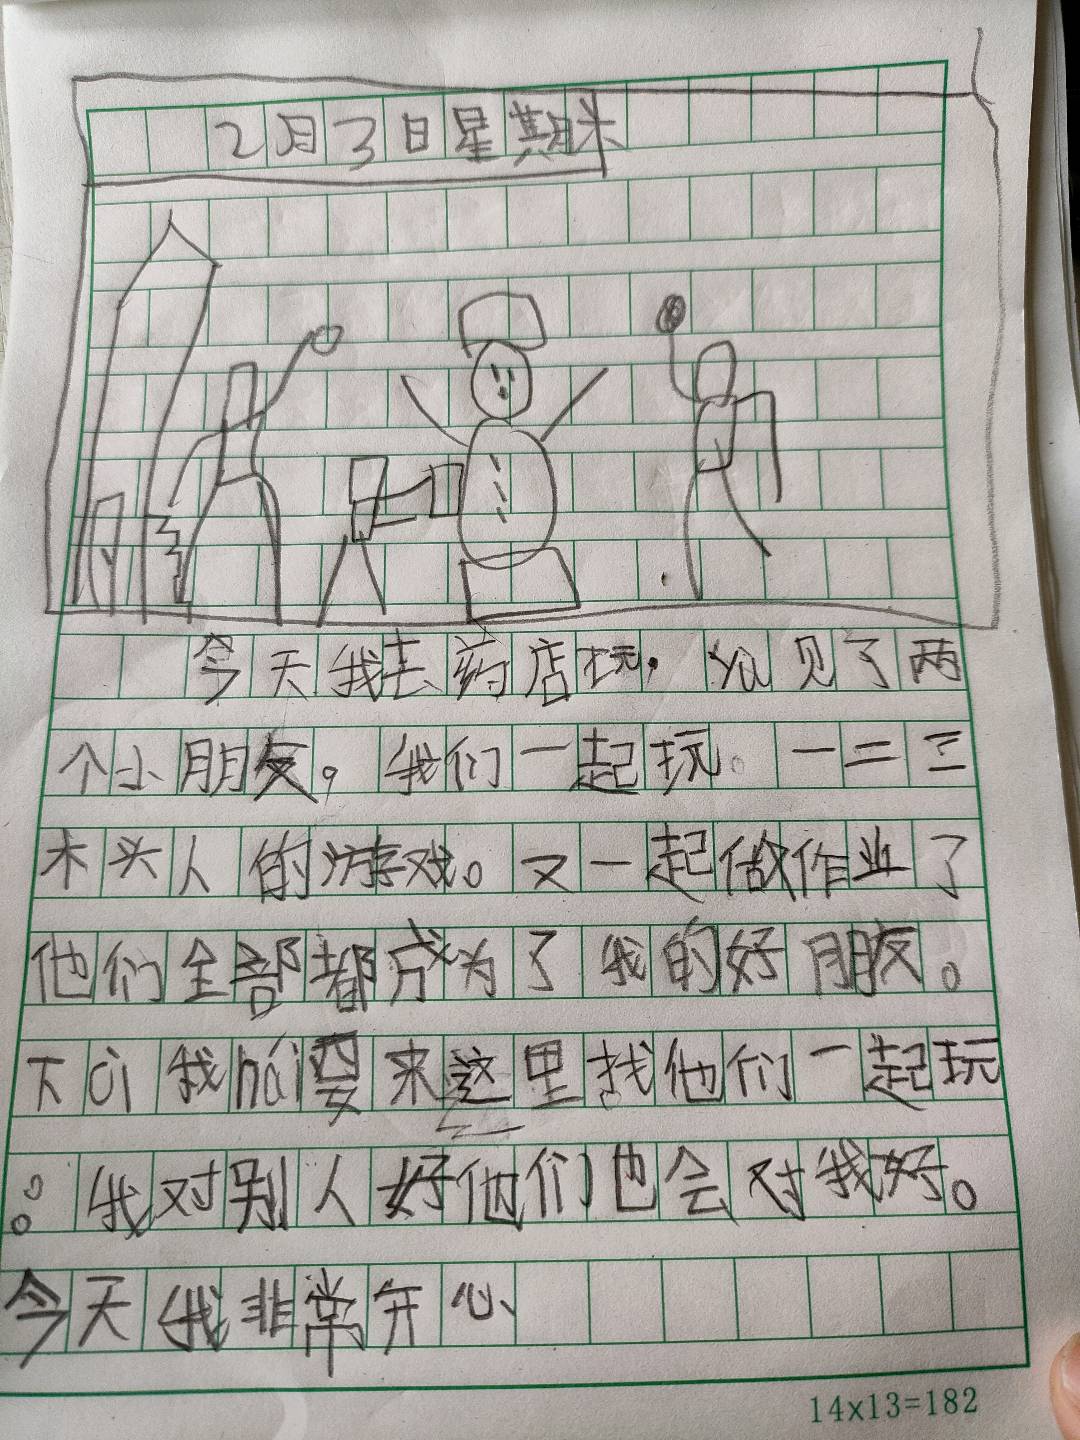 2月3日星期米
今天我去药店玩,yù见了两
个小朋友。我们一起玩。一二三
木头人的游戏。又一起做作业了
他们全部都成为了我的好朋友。
下cì我hái要来这里找他们一起玩
。我对别人好他们也会对我好。
今天我非常开心
14x13=182